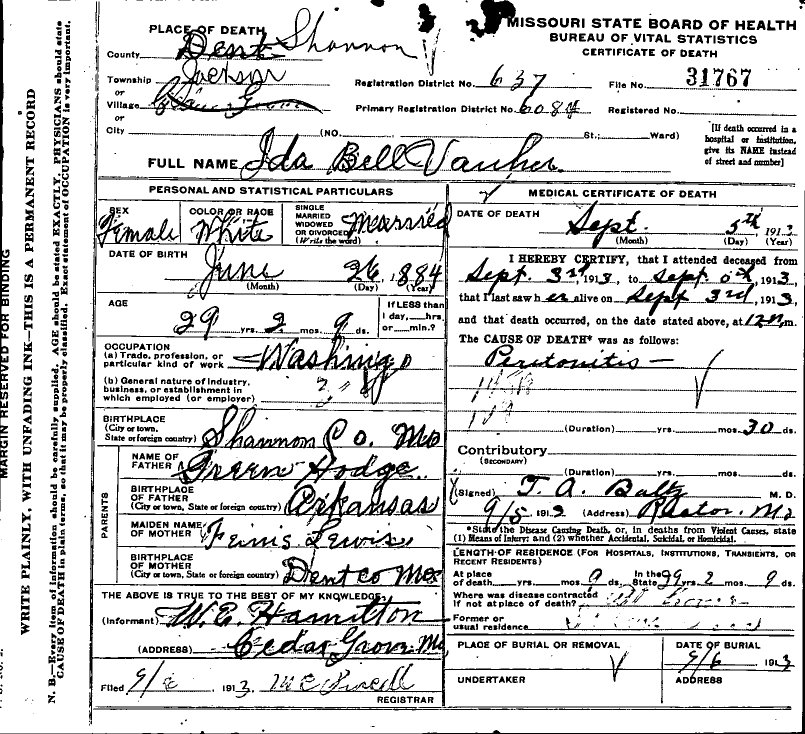 MISSOURI STATE BOARD OF HEALTH
BUREAU OF VITAL STATISTICS
CERTIFICATE OF DEATH
PLACE OF DEATH
County Dent Shannon
Township Jackson
or
Village
or
City (NO. St.; Ward)
Registration District No. 637 File No. 31767
Primary Registration District No. 6084 Registered No.
[If death occurred in a
hospital or institution,
give its NAME instead
of street and number]
FULL NAME Ida Bell Vauher.
PERSONAL AND STATISTICAL PARTICULARS
SEX Female
COLOR OR RACE White
SINGLE
MARRIED
WIDOWED
OR DIVORCED
(Write the word)
Married
DATE OF BIRTH
June 26, 1884
(Month) (Day) (Year)
AGE
29 yrs. 2 mos. 9 ds.
If LESS than
1 day, hrs.
or min.?
OCCUPATION
(a) Trade, profession, or
particular kind of work Washing
(b) General nature of industry,
business, or establishment in
which employed (or employer)
BIRTHPLACE
(City or town,
State or foreign country) Shannon Co. Mo
PARENTS
NAME OF
FATHER Green Hodge
BIRTHPLACE
OF FATHER
(City or town, State or foreign country) Arkansas
MAIDEN NAME
OF MOTHER Lewis
BIRTHPLACE
OF MOTHER
(City or town, State or foreign country) Dent co Mo
THE ABOVE IS TRUE TO THE BEST OF MY KNOWLEDGE
(Informant) W. E. Hamilton
(ADDRESS) Cedar Grove Mo
Filed 9/ 1913
REGISTRAR
MEDICAL CERTIFICATE OF DEATH
DATE OF DEATH
Sept. 5th 1913
(Month) (Day) (Year)
I HEREBY CERTIFY, that I attended deceased from
Sept. 3rd, 1913, to Sept. 1913,
that I last saw her alive on Sept 3rd, 1913,
and that death occurred, on the date stated above, at 12 m.
The CAUSE OF DEATH* was as follows:
Peritonitis
(Duration) yrs. mos. 30 ds.
Contributory
(SECONDARY)
(Duration) yrs. mos. ds.
(Signed) T. A. Baltz M. D.
9/5 1913 (Address) Mo
*State the Disease Causing Death, or, in deaths from Violent Causes, state
(1) Means of Injury; and (2) whether Accidental, Suicidal, or Homicidal.
LENGTH OF RESIDENCE (FOR HOSPITALS, INSTITUTIONS, TRANSIENTS, OR
RECENT RESIDENTS)
At place
of death yrs. mos. 9 ds. In the State 29 yrs. 2 mos. 9 ds.
Where was disease contracted
if not at place of death?
Former or
usual residence
PLACE OF BURIAL OR REMOVAL
DATE OF BURIAL
9/6 1913
UNDERTAKER
ADDRESS
MARGIN RESERVED FOR BINDING
WRITE PLAINLY, WITH UNFADING INK—THIS IS A PERMANENT RECORD
N. B.—Every item of information should be carefully supplied. AGE should be stated EXACTLY. PHYSICIANS should state
CAUSE OF DEATH in plain terms, so that it may be properly classified. Exact statement of OCCUPATION is very important.